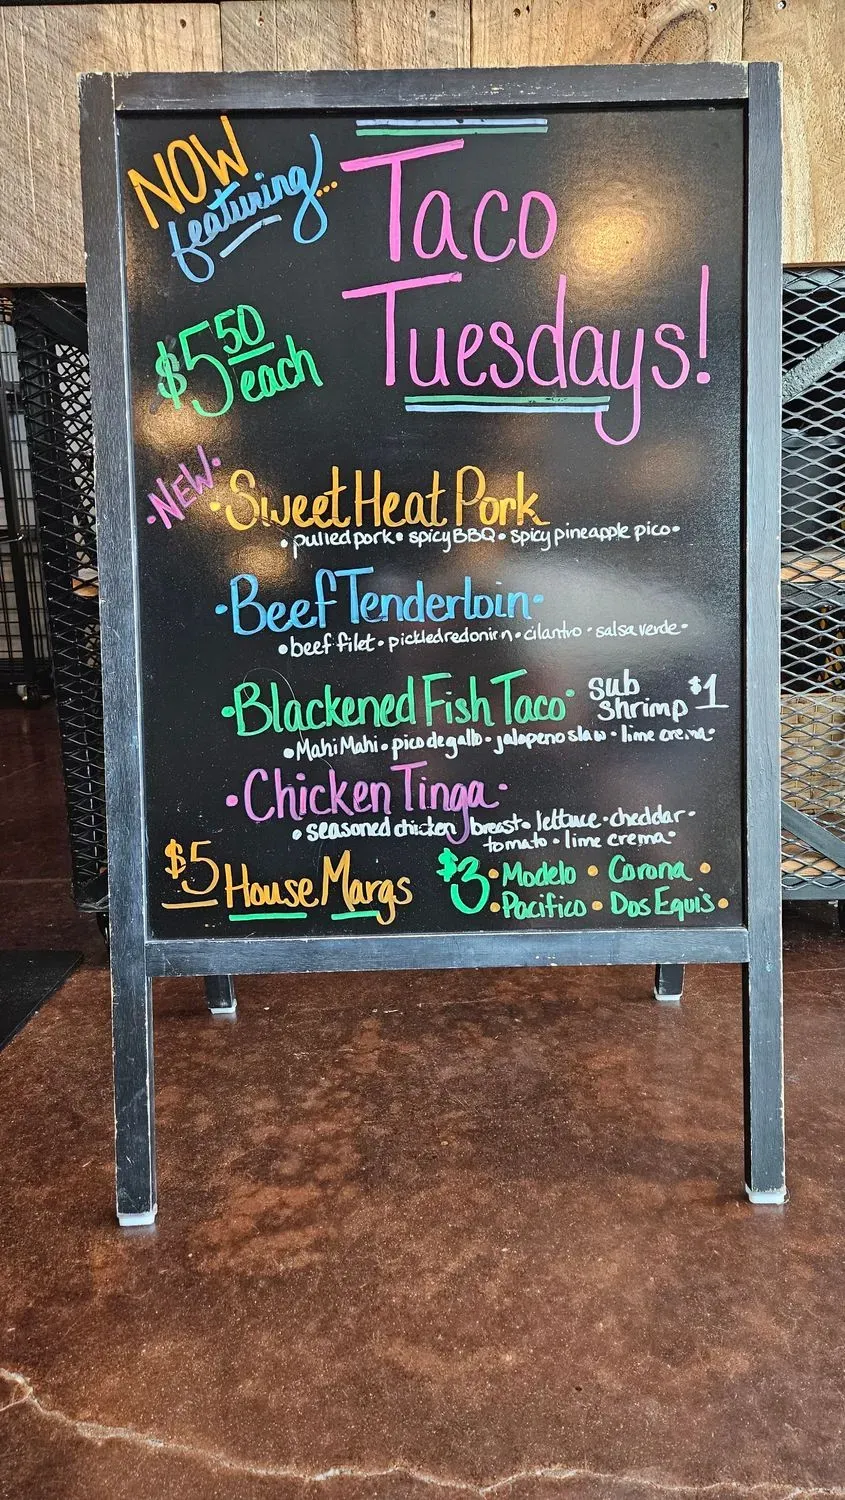 NOW
featuring...
Taco
Tuesdays!
$5.50
each
•NEW•
•Sweet Heat Pork
•pulled pork• spicy BBQ• spicy pineapple pico•
•Beef Tenderloin•
•beef filet• pickled red onion •cilantro •salsa verde•
•Blackened Fish Taco•
sub
shrimp $1
•Mahi Mahi• pico de gallo• jalapeno slaw • lime crema•
•Chicken Tinga•
•seasoned chicken breast• lettuce •cheddar•
tomato • lime crema•
$5 House Margs
$3 •Modelo • Corona •
•Pacifico • Dos Equis •